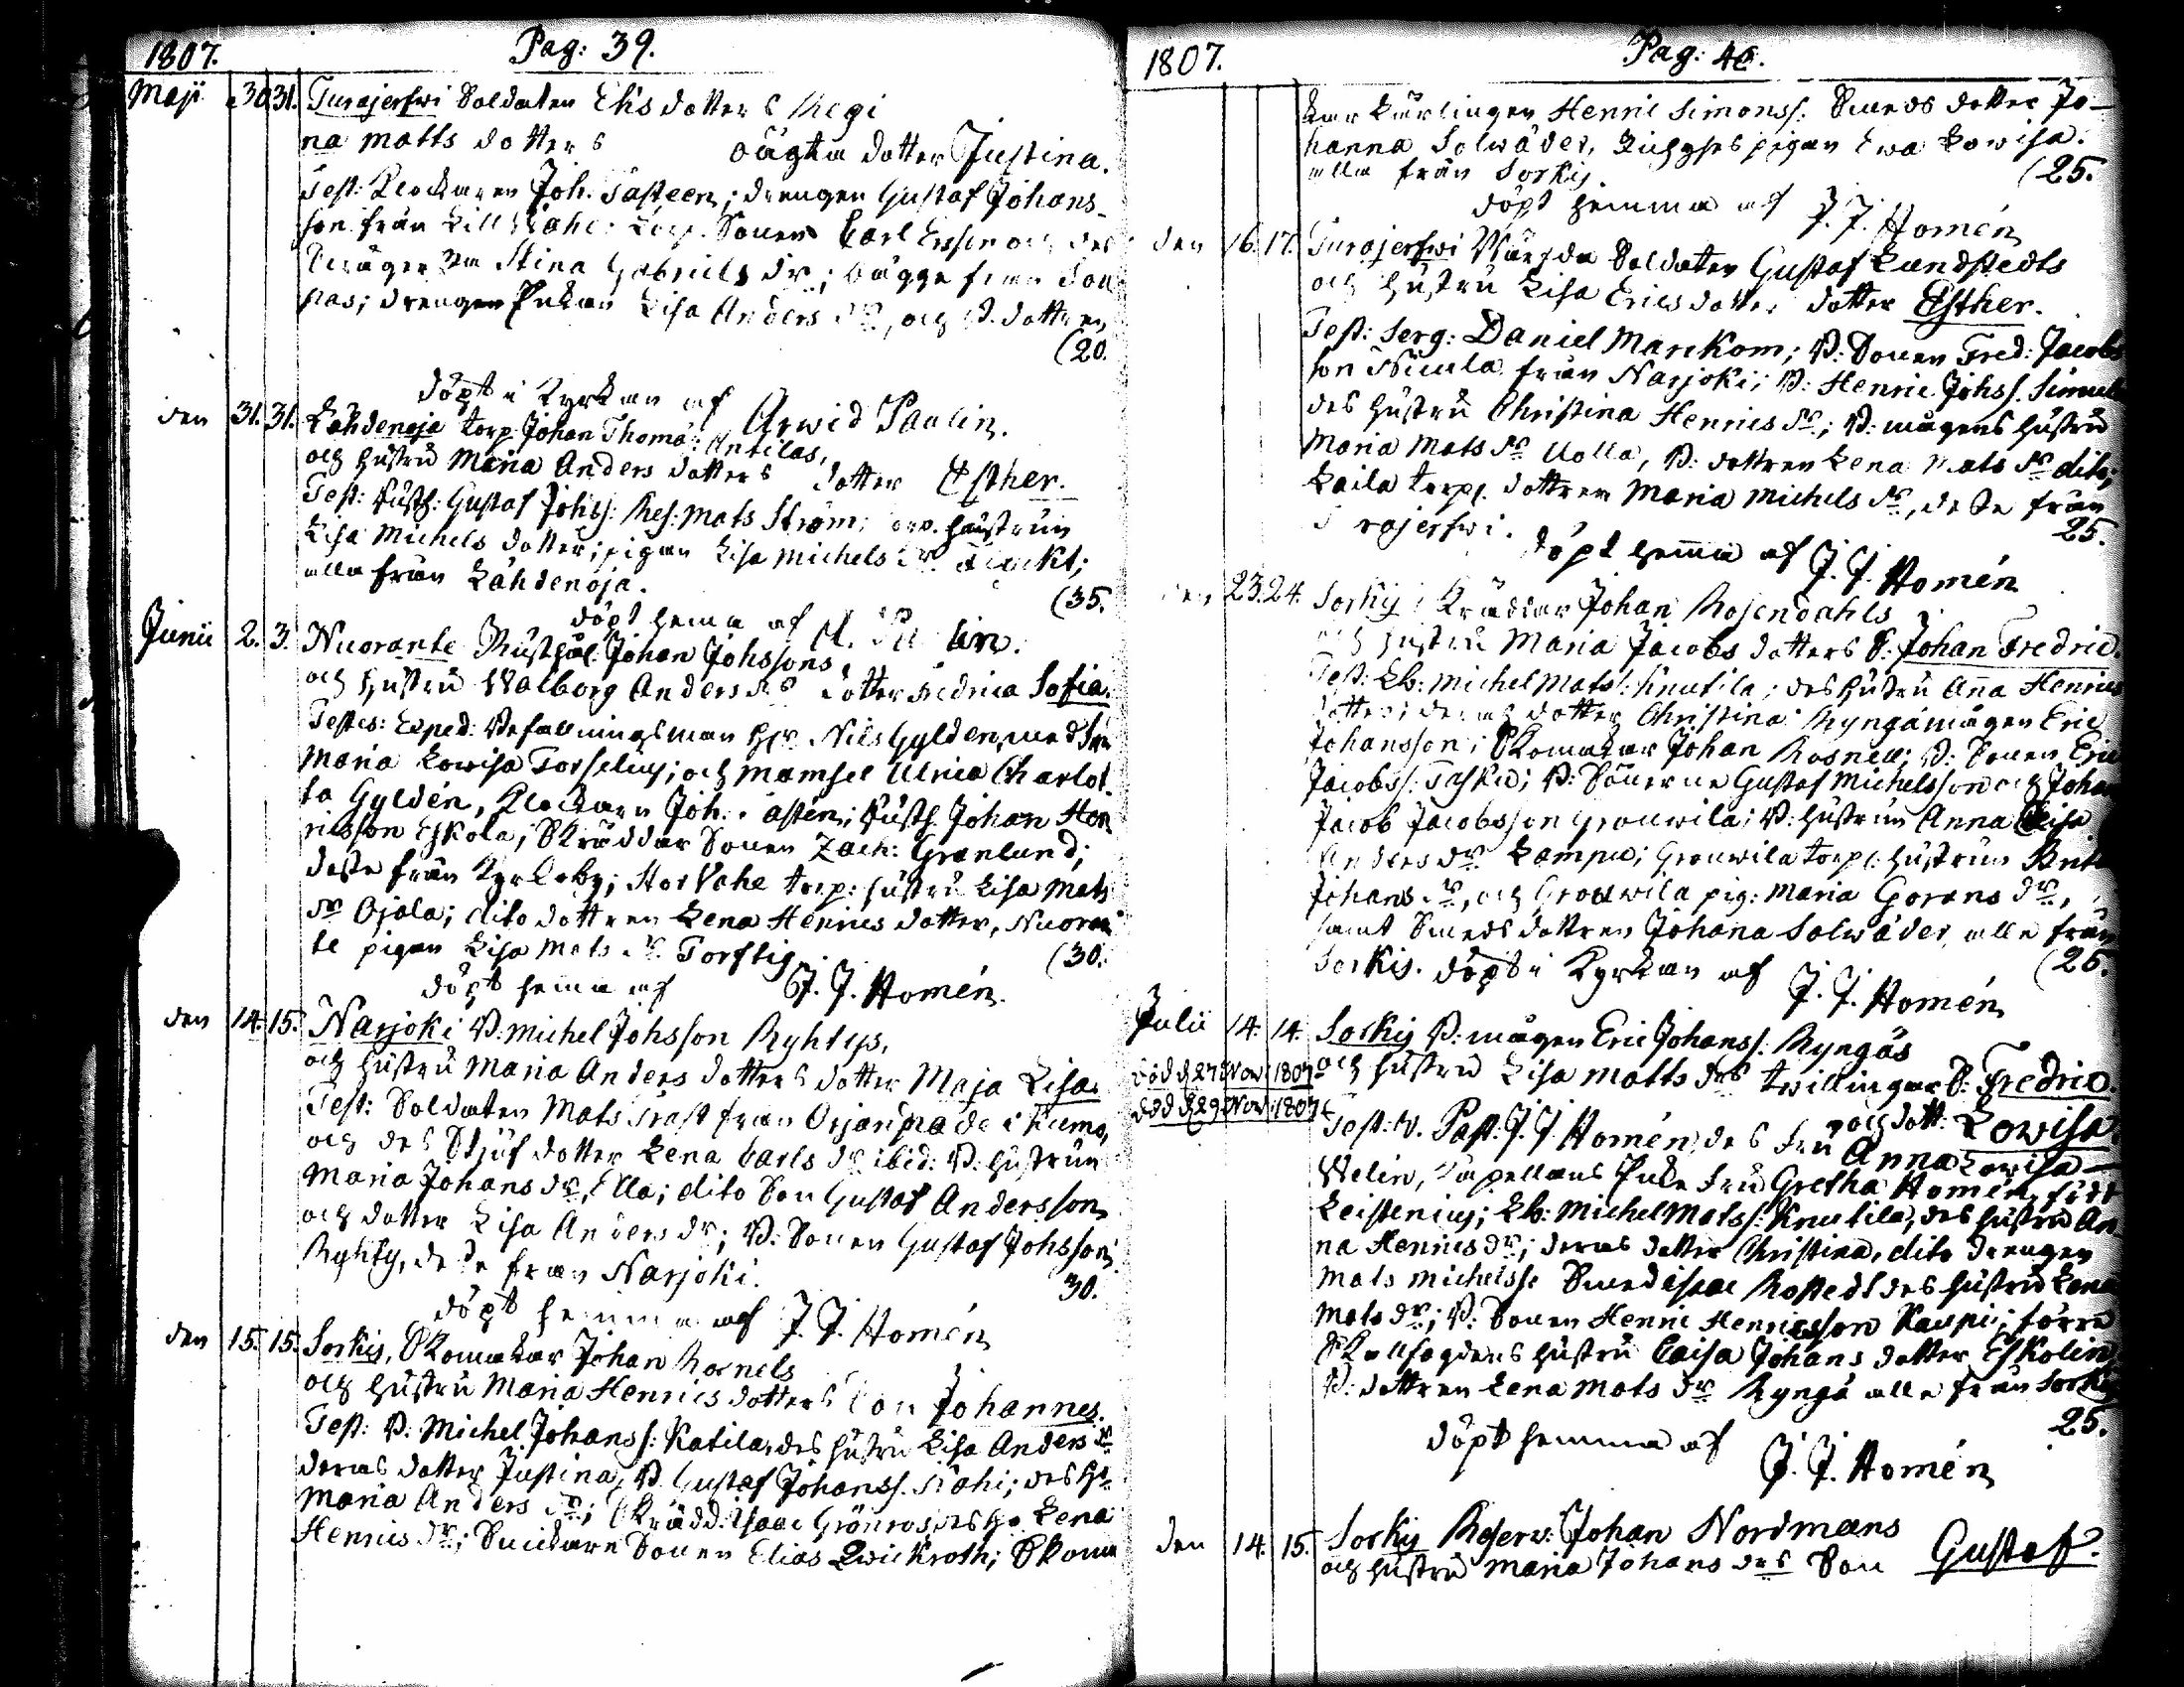 1807. Pag: 39.
Maji 30 31. Turajerfwi Soldaten Elisdotters Regi
na Matts dotters oägta dotter Justina.
Test: Klockaren Joh. Tasteen; drengen Gustaf Johans-
son från Lill Sonen Carl och des
Stina Gabriels dr; bägge från
drengen Enkan Lisa Anders dr, och B. dottren
(20.
döpt i Kyrkan af Arwid Paulin.
den 31. 31. Lähdenoja torp. Johan Thomæ: Antilas,
och hustru Maria Anders dotters dotter Esther.
Test: Rusth: Gustaf Johss: Res: Mats Ström; hustrun
Lisa Michels dotter; pigan Lisa Michels dr
alla från Lähdenoja.
(35.
döpt hema af A. Paulin.
Junii 2. 3. Nuorante Rusthål. Johan Johssons,
och hustru Walborg Anders drs dotter Fredrica Sofia.
Testes: Exped: Befallningsman Hr Nils Gylden, med Fru
Maria Lowisa Forselius; och Mamsel Ulrica Charlot-
ta Gyldén, Klockarn Joh: Tastén; Rusth. Johan Hen
ricsson Eskola; Skräddar Sonen Zach: Grönlund;
desse från Kyrkoby; Stor Wahe torp: hustru Lisa Mats
dr Ojala; dito dottren Lena Henrics dotter, Nuoran
te pigan Lisa Mats dr Torftig.
(30.
döpt hema af J. J. Homén.
den 14. 15. Narjoki B. Michel Johsson Ryhtys,
och hustru Maria Anders dotters dotter Maja Lisa.
Test: Soldaten Mats Trast från i Kumo,
och des Stjuf dotter Lena Carls dr ibid: B. hustrun
Maria Johans dr, Ella; dito Son Gustaf Andersson
och dotter Lisa Anders dr; B: Sonen Gustaf Johsson
Ryhty, desse från Narjoki.
30.
döpt hemma af J. J. Homén
den 15. 15. Sorkis, Skomakar Johan Rosnels
och hustru Maria Henrics dotters Son Johannes.
Test: B. Michel Johanss: Katila, des hustru Lisa Anders dr
deras dotter Justina, B. Gustaf Johanss. des hu
Maria Anders dr; Skrädd: Isaac Grönros, des hu Lena
Henrics dr; Snickare Sonen Elias Qwickroth; Skoma
1807. Pag: 40.
kar Lärlingen Henric Simonss: Smeds dotter Jo-
hanna Solwäder, pigan Ewa Lowisa.
alla från Sorkis.
(25.
döpt hemma af J. J. Homén
den 16. 17. Turajerfwi Wärfda Soldaten Gustaf Lundstedts
och hustru Lisa Erics dotters dotter Esther.
Test: Serg: Daniel Marckom; B: Sonen Fred: Jacobs
son från Narjoki; B: Henric Johss.
des hustru Christina Henrics dr; B: mågens hustru
Maria Mats dr Uolla, B: dottren Lena Mats dr dito;
Laila torps dottren Maria Michels dr, desse från
Turajerfwi.
25.
döpt hemma af J. J. Homén
den 23. 24. Sorkis Skräddar Johan Rosendahls
och hustru Maria Jacobs dotters S: Johan Fredric.
Test: Lb: Michel Mats: Knutila; des hustru Anna Henrics
dotter; deras dotter Christina; Ryngä mågen Eric
Johansson; Skomakar Johan Rosnell; B: Sonen Eric
Jacobss: B: Sönerne Gustaf Michelsson och Johan
Jacob Jacobsson Grouwila; B: hustrun Anna Caisa
Anders dr Grouwila torps: hustrun Brita
Johans dr, och Grouwila pig: Maria Görans dr,
samt Smeds dottren Johana Solwäder, alla från
Sorkis.
(25.
döpt i Kyrkan af J. J. Homén
Julii 14. 14. Sorkis B: mågen Eric Johanss: Ryngäs
och hustru Lisa Matts drs twillingar S: Fredric.
och dott: Lowisa.
död d 27 Nov: 1807
död d 29 Nov: 1807
Test: W. Past: J. J. Homén, des Fru Anna Lowisa
Welin, Capellans Enke Fru Gretha Homén, född
Leistenius; Lb: Michel Matss: Knutila, des hustru An-
na Henrics dr; deras dotter Christina, dito drengen
Mats Michelss: Smed Isaac Rostedt des hustru Lena
Mats dr; B: Sonen Henric Henricsson Kaupi; förre
hustru Caisa Johans dotter Eskolin
B: dottren Lena Mats dr Ryngä alla från Sorkis
25.
döpt hemma af J. J. Homén
den 14. 15. Sorkis Reserv: Johan Nordmans
och hustru Maria Johans drs Son Gustaf.